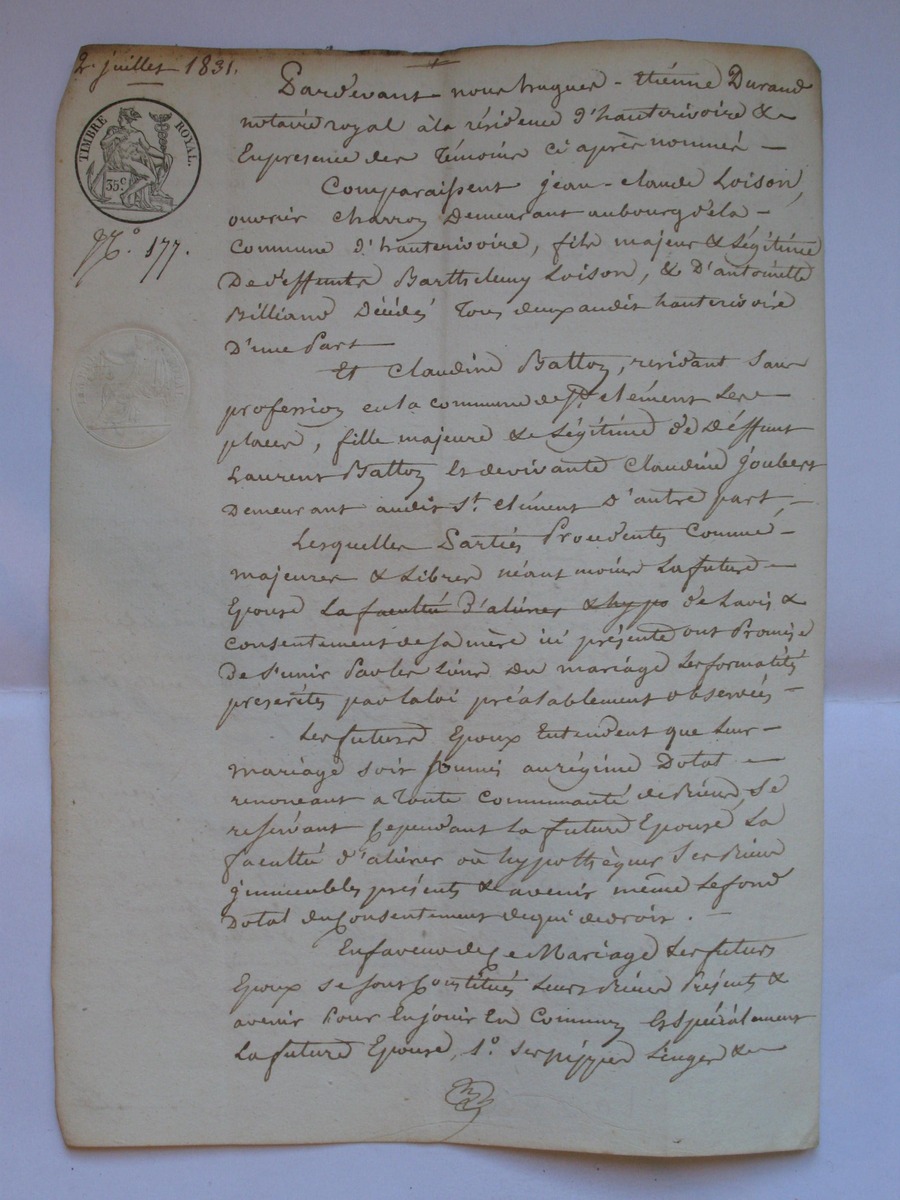 2. juillet 1831.
TIMBRE ROYAL.
35 c
N.º 177.
Pardevant nous hugues-Etiénne Durand
notaire royal à la résidence d'hauterivoire &
En présence des Témoins ci après nommés —
Comparaissent jean-claude Loison,
ouvrier charron Demeurant au bourg de la —
Commune d'hauterivoire, fils majeur & Légitime
De deffunts Barthélemy Loison, & D'antoinette
Billiard Décédés Tous deux audit hauterivoire
D'une Part
Et Claudine Batton, residant Sans
profession en la commune de St. clément Les —
places, fille majeure & Légitime de Déffunt
Laurent Batton Et de vivante Claudine joubert
Demeurant audit St. clément D'autre part, —
Lesquelles Parties Procédentes Comme —
majeures & Libres néant moins La future —
Epouse La faculté d'aliéner & hypo de Lavis &
Consentement de sa mère ici présente ont Promis
De s'unir Par les Liens Du mariage Les formalités
prescrites par la loi préalablement observées —
Les futurs Epoux Entendent que Leur —
mariage soit soumis au régime Dotal —
renonçant a Toute Communauté de biens, se
reservant Cependant La future Epouse La
faculté d'aliéner ou hypothèquer Ses biens
jmmeubles présents & avenir même Le fond
Dotal du Consentement de qui de droit. —
En faveur de Ce Mariage Les futurs
Epoux se sont Constitués Leurs biens Présents &
avenir Pour En jouir En Commun Et spécialement
La future Epouse, 1.º Ses nippes Linges &